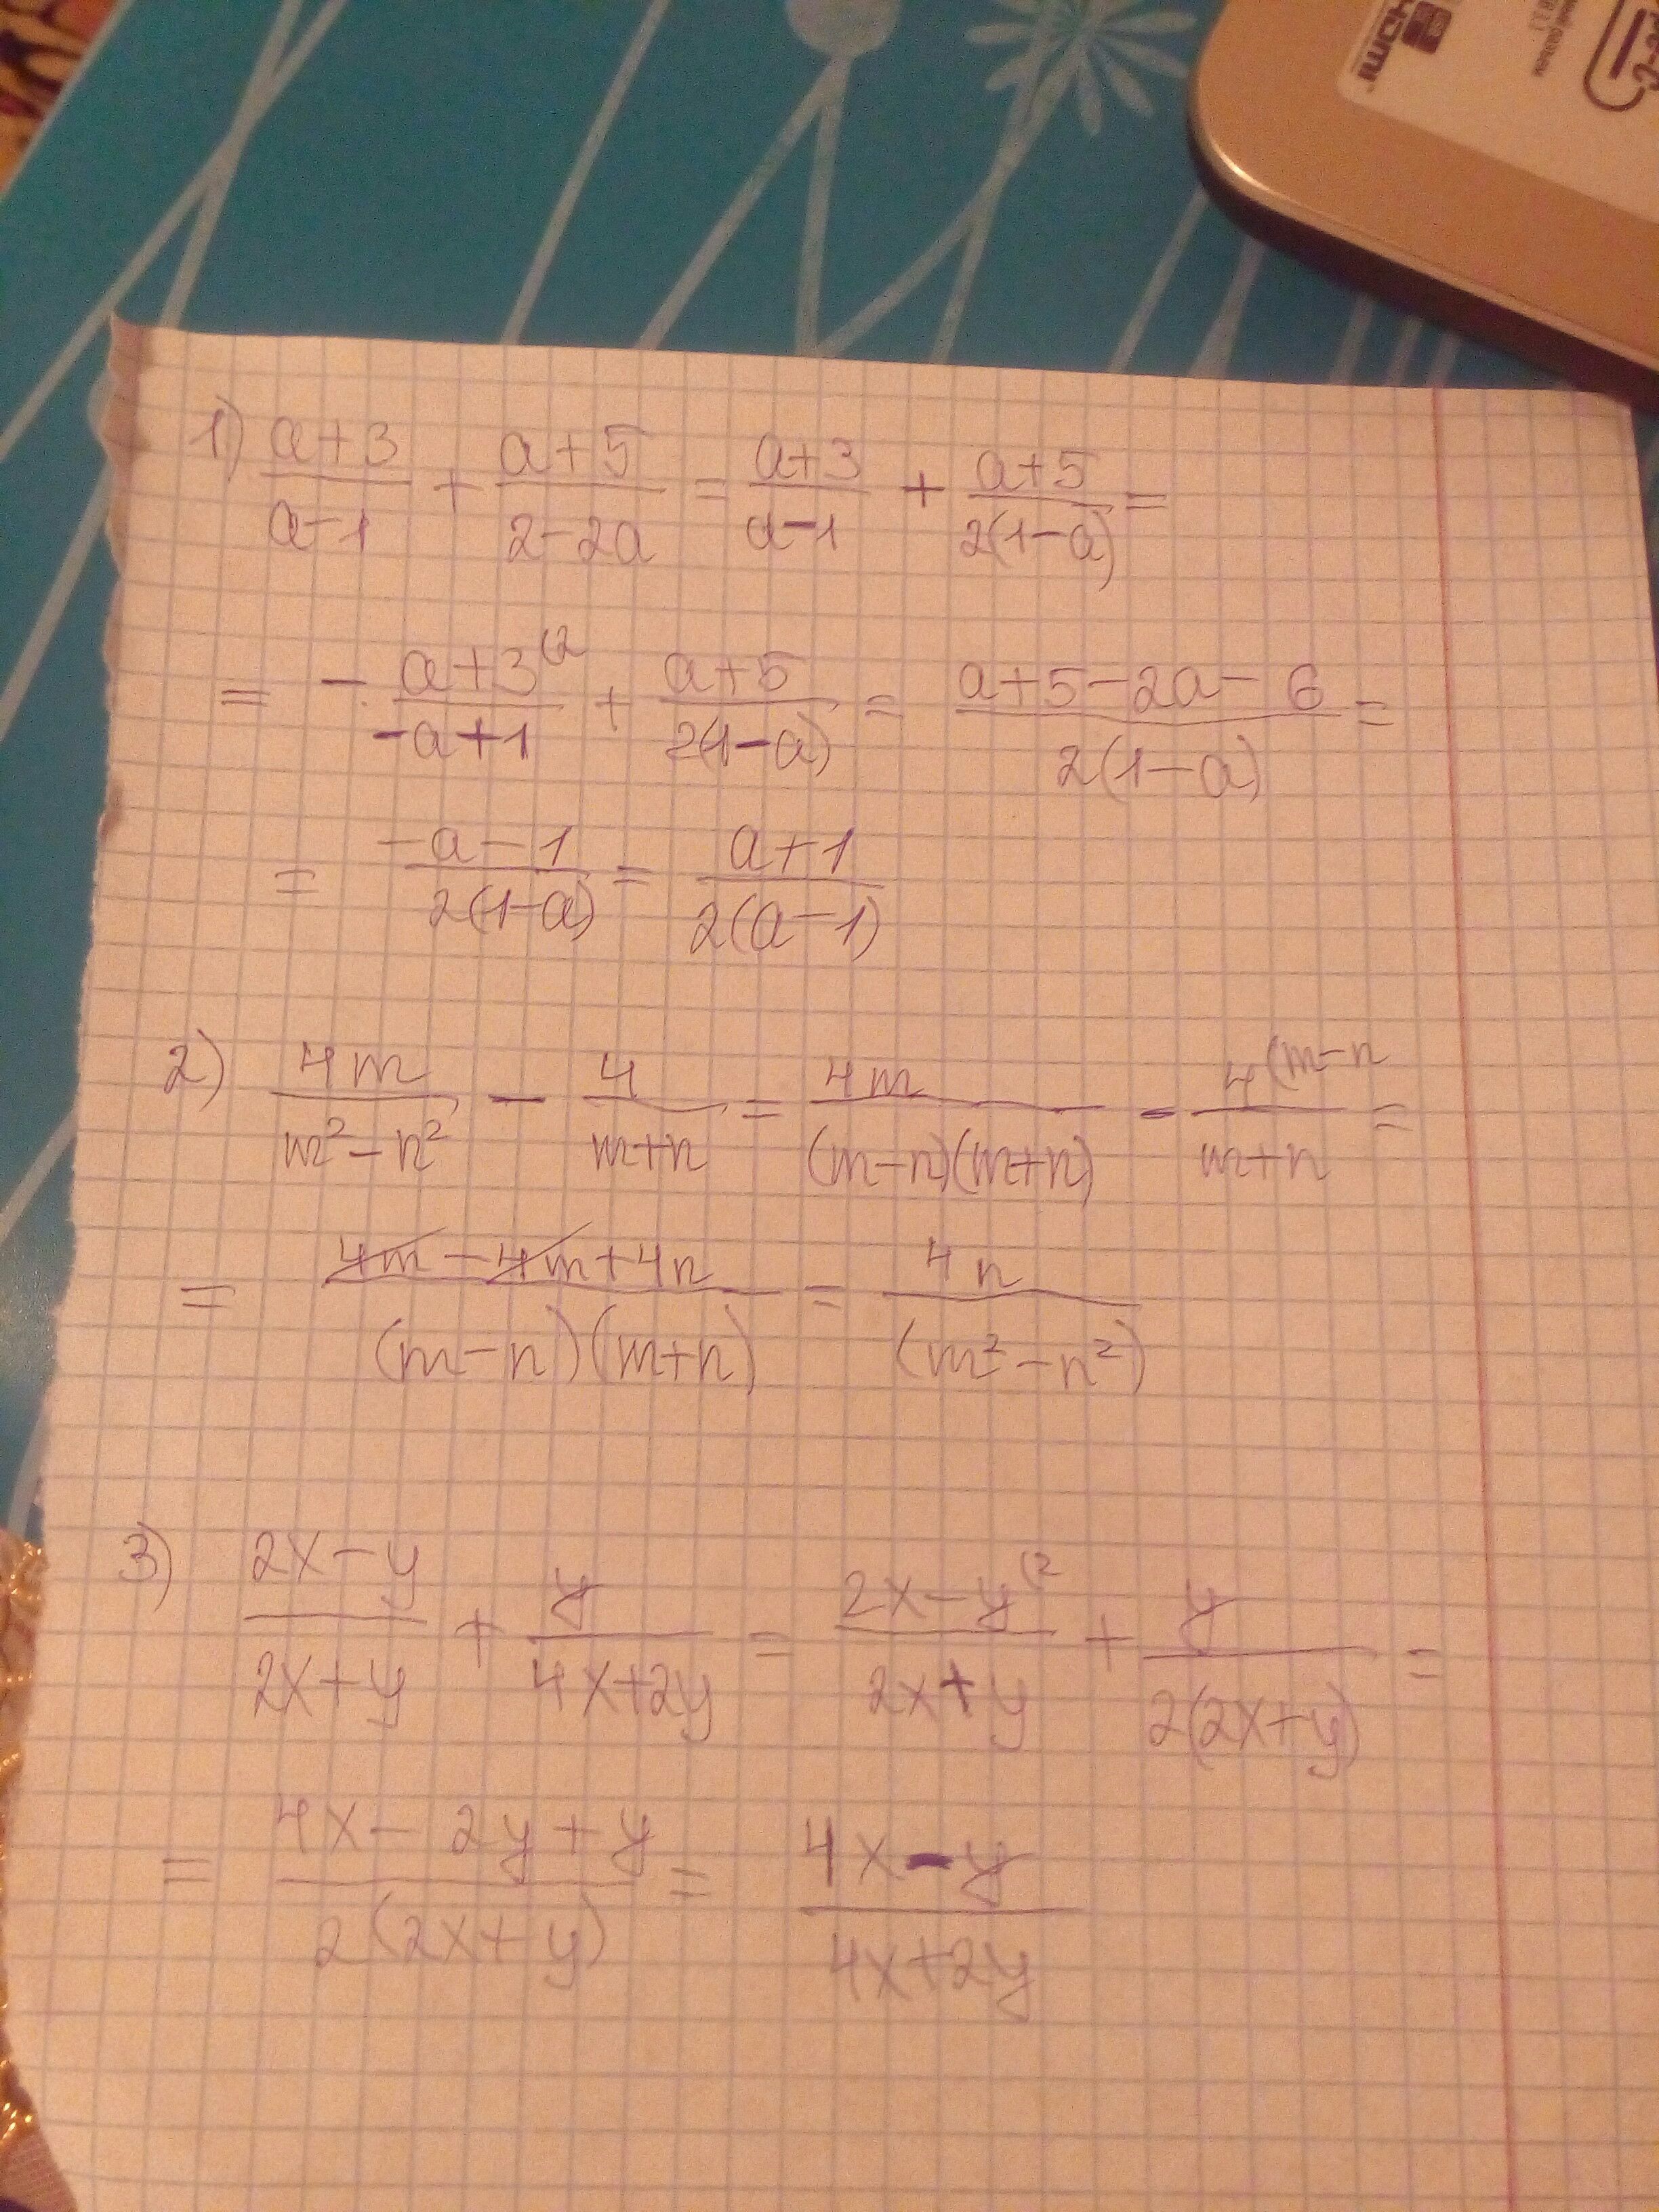 HDMI
1) (a+3)/(a-1) + (a+5)/(2-2a) = (a+3)/(a-1) + (a+5)/(2(1-a)) =
= - (a+3)/(-a+1) (2 + (a+5)/(2(1-a)) = (a+5-2a-6)/(2(1-a)) =
= (-a-1)/(2(1-a)) = (a+1)/(2(a-1))
2) 4m/(m²-n²) - 4/(m+n) = 4m/((m-n)(m+n)) - 4/(m+n) (m-n =
= (4m-4m+4n)/((m-n)(m+n)) = 4n/(m²-n²)
3) (2x-y)/(2x+y) + y/(4x+2y) = (2x-y)/(2x+y) (2 + y/(2(2x+y)) =
= (4x-2y+y)/(2(2x+y)) = (4x-y)/(4x+2y)